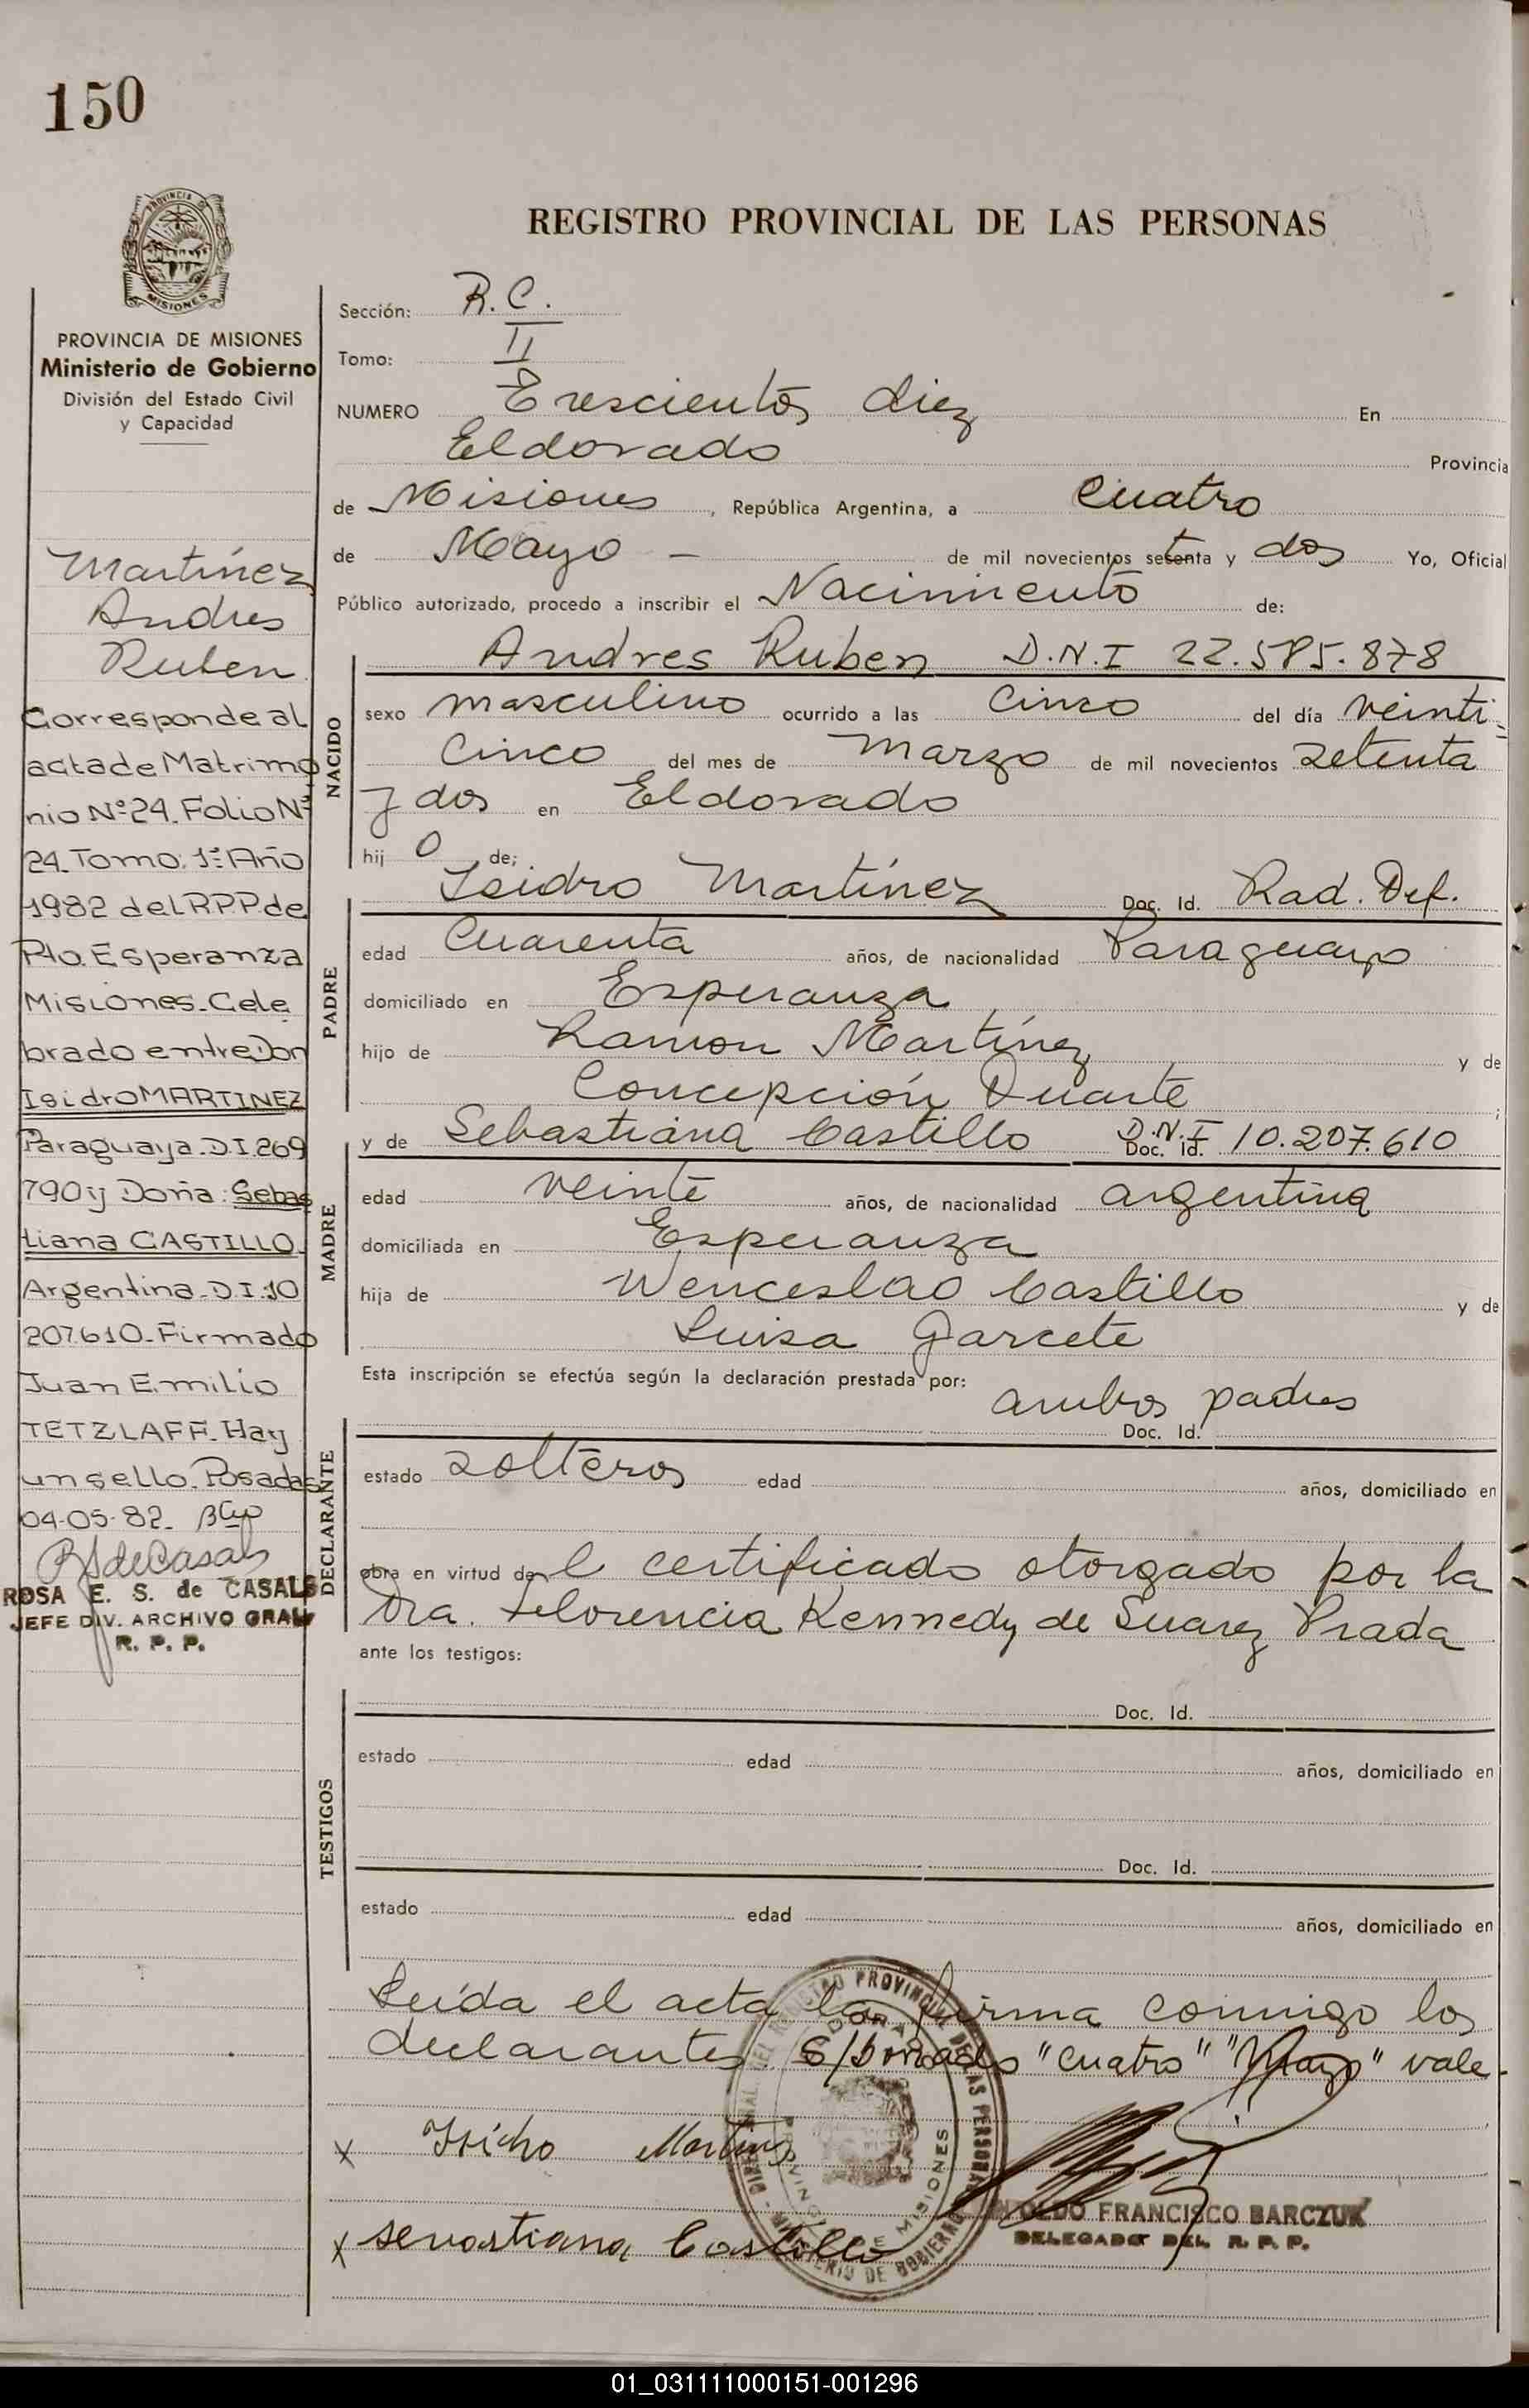 150
REGISTRO PROVINCIAL DE LAS PERSONAS
PROVINCIA DE MISIONES
Ministerio de Gobierno
División del Estado Civil
y Capacidad
Martínez
Andres
Ruben
Corresponde al
acta de Matrimo
nio Nº 24. Folio Nº
24. Tomo: 1º Año
1982 del R.P.P. de
Pto. Esperanza
Misiones. Cele
brado entre Don
Isidro MARTINEZ
Paraguaya. D.I. 269
790 y Doña: Sebas
tiana CASTILLO.
Argentina. D.I. 10
207.610 - Firmado
Juan Emilio
TETZLAFF. Hay
un sello. Posadas
04-05-82.
ROSA E. S. de CASALS
JEFE DIV. ARCHIVO GRAL
R. P. P.
Sección: R.C.
Tomo: II
NUMERO Trescientos diez En
Eldorado Provincia
de Misiones, República Argentina, a cuatro
de Mayo - de mil novecientos setenta y dos Yo, Oficial
Público autorizado, procedo a inscribir el Nacimiento de:
NACIDO
Andres Ruben D.N.I 22.585.878
sexo masculino ocurrido a las cinco del día veinti-
cinco del mes de marzo de mil novecientos setenta
y dos en Eldorado
hijo de:
PADRE
Isidro Martínez Doc. Id. Rad. Def.
edad cuarenta años, de nacionalidad Paraguayo
domiciliado en Esperanza
hijo de Ramon Martínez y de
Concepción Duarte;
MADRE
y de Sebastiana Castillo D.N.I Doc. Id. 10.207.610
edad veinte años, de nacionalidad argentina
domiciliada en Esperanza
hija de Wenceslao Castillo y de
Luisa Garcete
Esta inscripción se efectúa según la declaración prestada por: ambos padres
DECLARANTE
Doc. Id.
estado solteros edad años, domiciliado en
obra en virtud del certificado otorgado por la
Dra. Florencia Kennedy de Suarez Prada
ante los testigos:
TESTIGOS
Doc. Id.
estado edad años, domiciliado en
Doc. Id.
estado edad años, domiciliado en
Leída el acta la firma conmigo los
declarantes S/borrado "cuatro" "Mayo" vale-
x Isidro Martines
x sevastiana Castillo
FRANCISCO BARCZUK
DELEGADO DEL R. P. P.
01_031111000151-001296